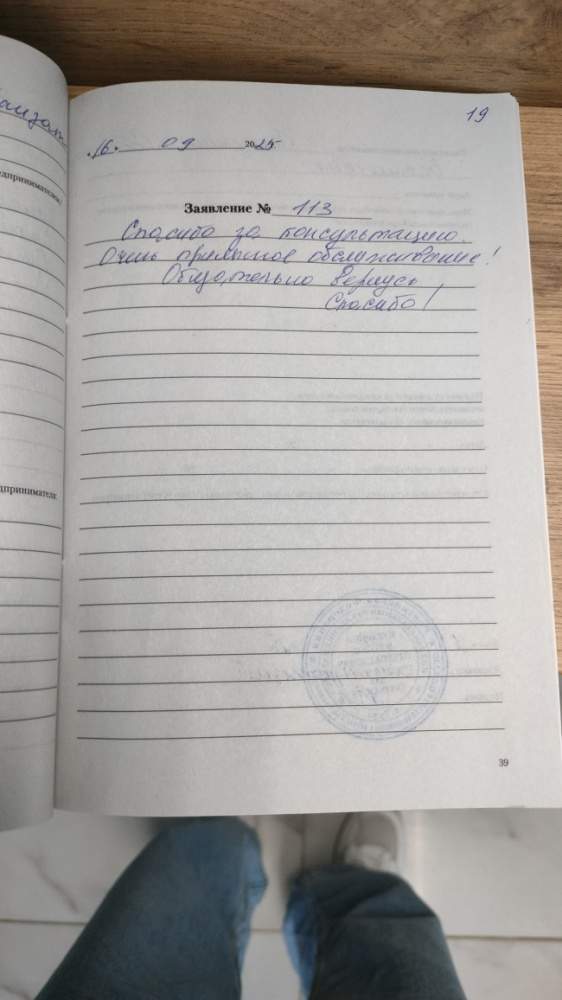 19
16. 09 2025
Заявление № 113
Спасибо за консультацию.
Очень приятное обслуживание!
Обязательно вернусь
Спасибо!
39